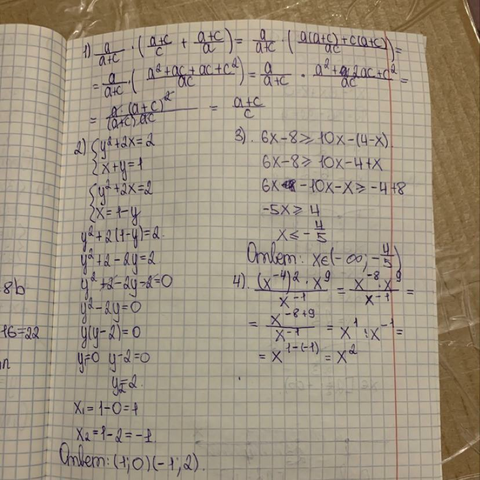 1) a/(a+c) · ((a+c)/c + (a+c)/a) = a/(a+c) · ((a(a+c)+c(a+c))/ac) =
= a/(a+c) · ((a²+ac+ac+c²)/ac) = a/(a+c) · (a²+2ac+c²)/ac =
= a·(a+c)²/((a+c)·ac) = (a+c)/c
2) { y²+2x=2
x+y=1
{ y²+2x=2
x=1-y
y²+2(1-y)=2
y²+2-2y=2
y²+2-2y-2=0
y²-2y=0
y(y-2)=0
y=0 y-2=0
y=2
x₁=1-0=1
x₂=1-2=-1
Ответ: (1;0)(-1;2).
3). 6x-8≥10x-(4-x)
6x-8≥10x-4+x
6x-10x-x≥-4+8
-5x≥4
x≤-4/5
Ответ: x∈(-∞;-4/5)
4). (x⁻⁴)²·x⁹/x⁻¹ = x⁻⁸·x⁹/x⁻¹ =
= x⁻⁸⁺⁹/x⁻¹ = x¹:x⁻¹=
= x¹⁻⁽⁻¹⁾ = x²
8b
16=22